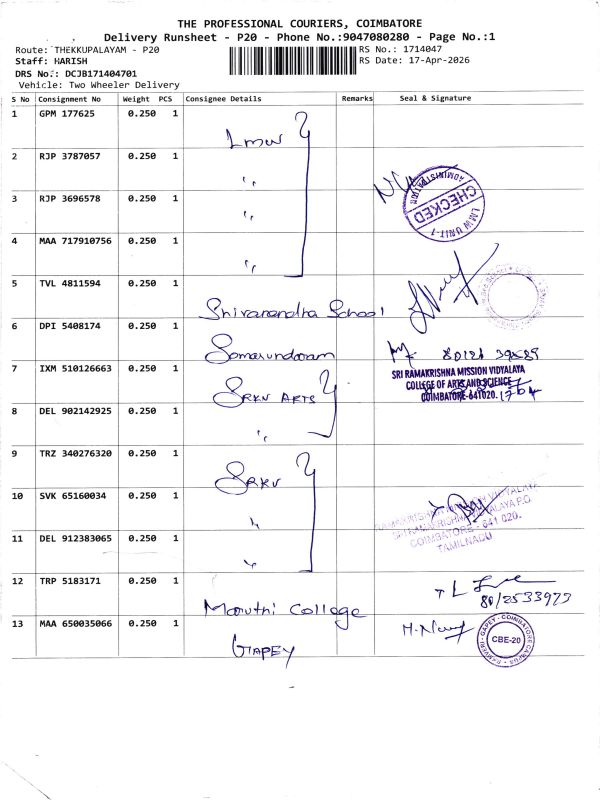 THE PROFESSIONAL COURIERS, COIMBATORE
Delivery Runsheet - P20 - Phone No.:9047080280 - Page No.:1
Route: THEKKUPALAYAM - P20
RS No.: 1714047
Staff: HARISH
RS Date: 17-Apr-2026
DRS No.: DCJB171404701
Vehicle: Two Wheeler Delivery
S No Consignment No Weight PCS Consignee Details Remarks Seal & Signature
1 GPM 177625 0.250 1
Lmw
2 RJP 3787057 0.250 1
"
3 RJP 3696578 0.250 1
"
4 MAA 717910756 0.250 1
"
CHECKED
LMW UNIT-1
5 TVL 4811594 0.250 1
School
6 DPI 5408174 0.250 1
7 IXM 510126663 0.250 1
SRKV ARTS
SRI RAMAKRISHNA MISSION VIDYALAYA
COLLEGE OF ARTS AND SCIENCE
COIMBATORE-641020.
8 DEL 902142925 0.250 1
"
9 TRZ 340276320 0.250 1
SRKV
10 SVK 65160034 0.250 1
"
COIMBATORE - 641 020.
TAMILNADU
11 DEL 912383065 0.250 1
"
12 TRP 5183171 0.250 1
Maruthi College
13 MAA 650035066 0.250 1
GAPEY
CBE-20